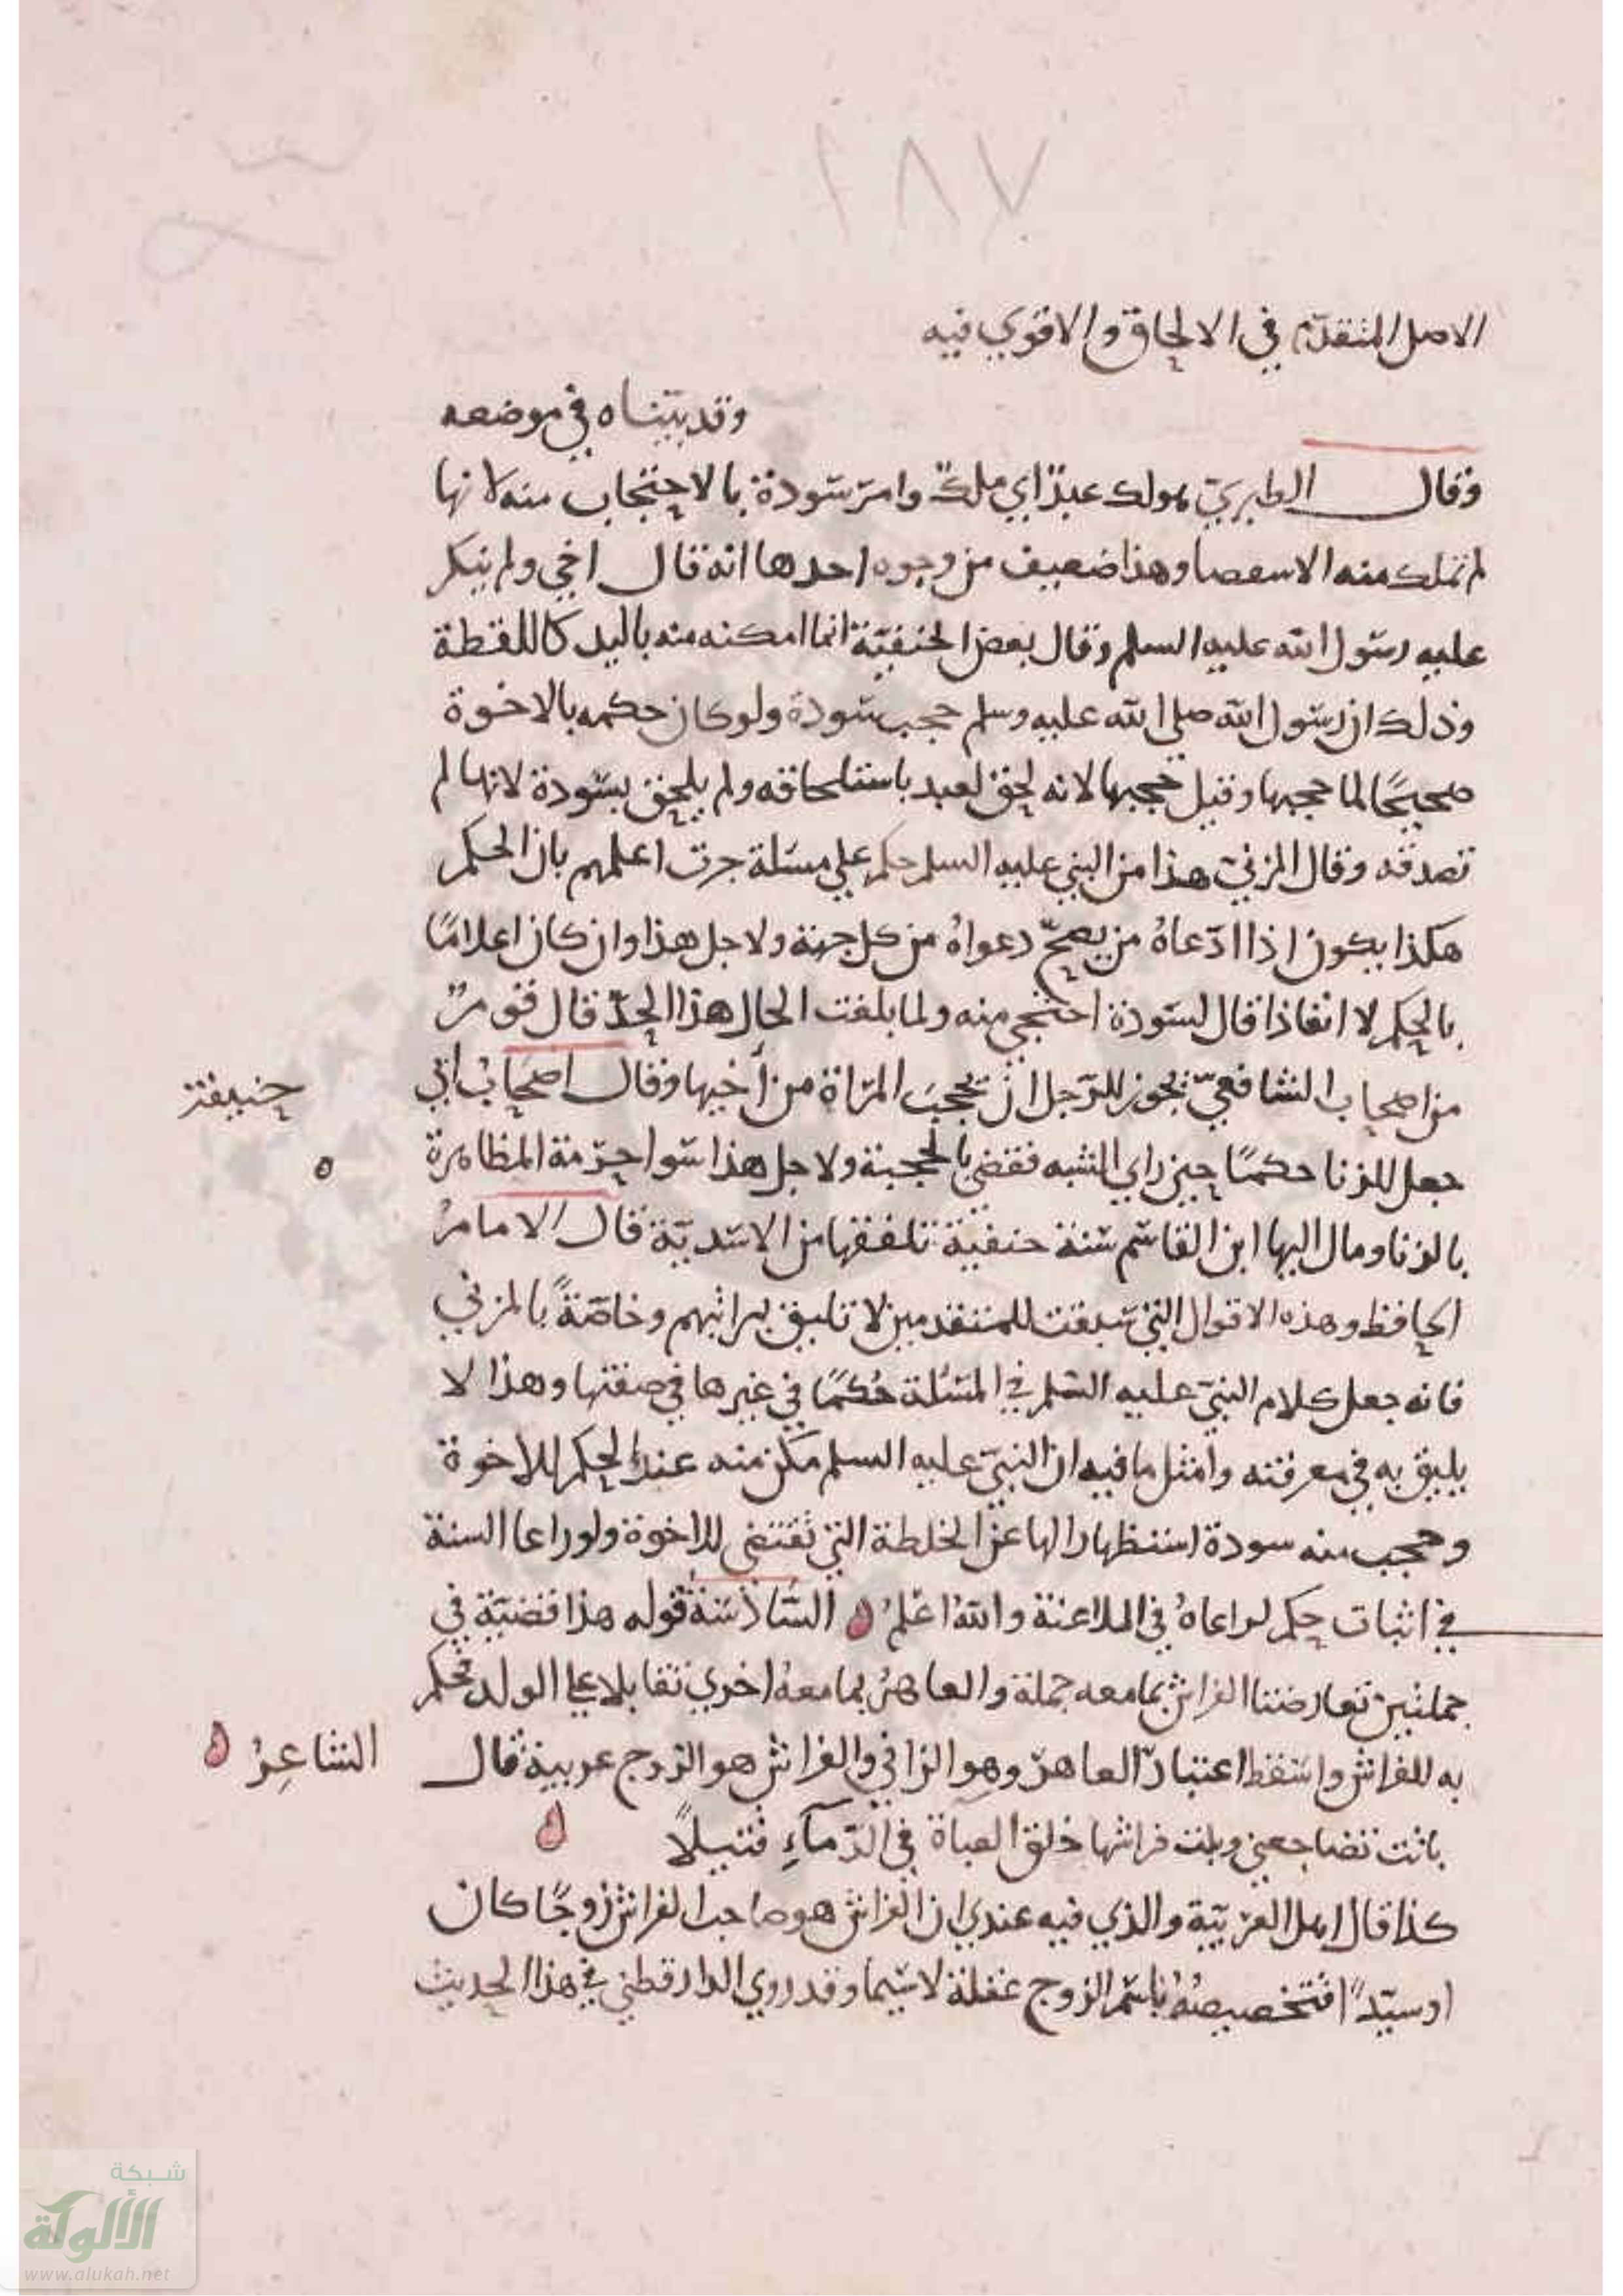 ٢٨٧
الاصل المتقدّم في الالحاق والاقوي فيه
وقد بيّناه في موضعه
وقال الطبريّ هولك عبدٌ اي ملكٌ وامرَ سَودة بالاحتجاب منه لانها
لم تملك منه الا سعصا وهذا ضعيف من وجوه احدها انه قال اخي ولم ينكر
عليه رسول الله عليه السلم وقال بعض الحنفيّة انما امكنه منه باليد كاللقطة
وذلك ان رسول الله صلى الله عليه وسلم حجب سَودة ولو كان حكمه بالاخوة
صحيحًا لما حجبها وقيل حجبها لانه لحق لعبد باستلحاقه ولم يلحق بسَودة لانها لم
تصدقه وقال المزنيّ هذا من النبي عليه السلم حكم علي مسَلة جرت اعلمهم بان الحكم
هكذا يكون اذا ادّعاهُ من يصحّ دعواهُ من كل جهة ولاجل هذا وان كان اعلامًا
بالحكم لا انفاذا قال لسَودة احتجبي منه ولما بلغت الحال هذا الحدّ قال قومٌ
من اصحاب الشافعيّ يجوز للرّجل ان يحجبَ المرَاة من أخيها وقال اصحابُ أبي حنيفة
جعل للزنا حكمًا حين راي الشبه فقضي بالحجبة ولاجل هذا سَوا حرّمة المظاهرة
بالزنا ومال اليها ابن القاسَم سَنة حنفيَة تلقفها من الاسَديّة قال الامامُ
الحافظ وهذه الاقوال التي سَبقت للمتقدمين لا تليق بمراتبهم وخاصّةً بالمزني
فانه جعل كلام النبيّ عليه السَلم في المسَئلة حُكمًا في غيرها في صفتها وهذا لا
يليق به في معرفته وامثل ما فيه ان النبيّ عليه السلم مكن منه عبدا لحكم الاخوة
وحجب منه سودة استظهارا لها عن الخلطة التي تقتضى للاخوة ولو راعا السنة
في اثبات حكم لراعاهُ في الملاعنة والله اعلمُ السَّادسَة قوله هذا قضيّة في
جملتين تعارضتا الفراش بما معه جملة والعاهرُ بما معهُ اخري تقابلا علي الولد فحكم
به للفراش واسَقط اعتبارَ العاهرَ وهو الزاني والفراش هو الزوج عربية قال الشاعِرُ
باتت تضاجعني وبلت فراشها خلق العباة في الدّمآءِ قتيلاً
كذا قال اهل العرَبيّة والذي فيه عندي ان الفراش هو صاحب الفراش زوجًا كان
او سيّدًا فتخصيصهُ باسَم الزوج غفلة لاسيّما وقد روي الدارقطني في هذا الحديث
شبكة
الألوكة
www.alukah.net